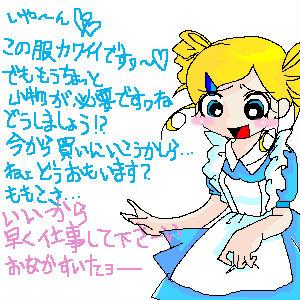 いや〜ん♡
この服カワイイですぅ〜♡
でももうちょっと
小物が必要ですわね
どうしましょう!?
今から買いにいこうかしら…
ねぇどうおもいます?
ももこさ…
いいから
早く仕事して下さーい
おなかすいたョー